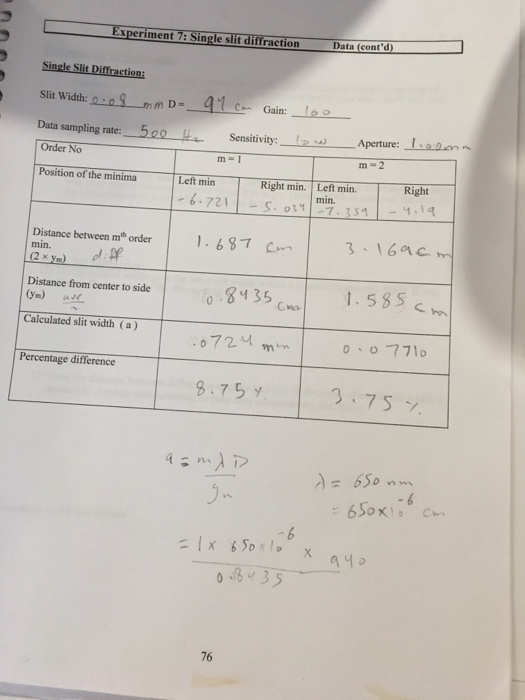 Experiment 7: Single slit diffraction Data (cont'd)
Single Slit Diffraction:
Slit Width: 0.08 mm D= cm Gain: 100
Data sampling rate: 500 Hz Sensitivity: low Aperture: 1.00mm
Order No m=1 m=2
Position of the minima Left min Right min. Left min. Right min.
-6.721 -5.034 -7.359 -4.19
Distance between mth order min. (2 × ym) diff 1.687 cm 3.169cm
Distance from center to side (ym) ave/2 0.8435 cm 1.585 cm
Calculated slit width (a) .0724 mm 0.07710
Percentage difference 8.75% 3.75%
a = mλD
ym
λ = 650 nm
= 650×10^-6 cm
= 1 × 650×10^-6 × 940
0.8435
76